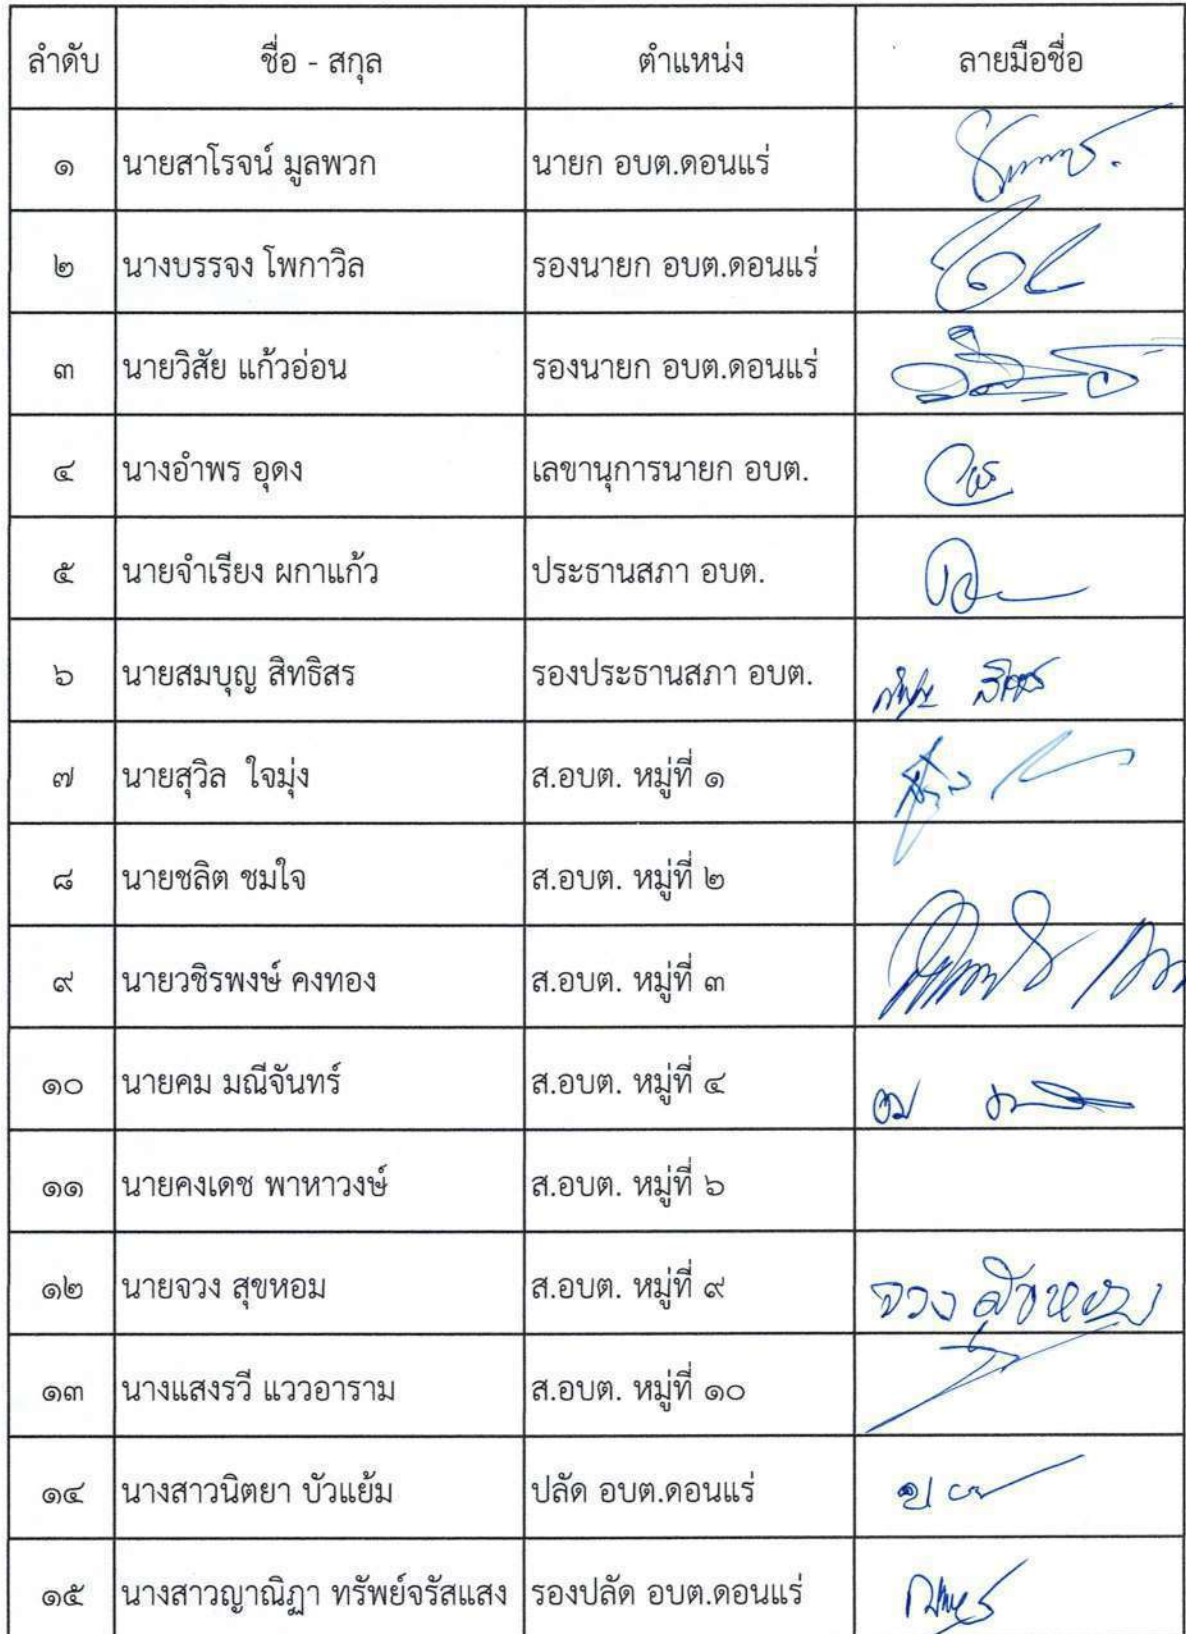 ลำดับ ชื่อ - สกุล ตำแหน่ง ลายมือชื่อ
๑ นายสาโรจน์ มูลพวก นายก อบต.ดอนแร่
๒ นางบรรจง โพกาวิล รองนายก อบต.ดอนแร่
๓ นายวิสัย แก้วอ่อน รองนายก อบต.ดอนแร่
๔ นางอำพร อุดง เลขานุการนายก อบต.
๕ นายจำเรียง ผกาแก้ว ประธานสภา อบต.
๖ นายสมบุญ สิทธิสร รองประธานสภา อบต.
๗ นายสุวิล ใจมุ่ง ส.อบต. หมู่ที่ ๑
๘ นายชลิต ชมใจ ส.อบต. หมู่ที่ ๒
๙ นายวชิรพงษ์ คงทอง ส.อบต. หมู่ที่ ๓
๑๐ นายคม มณีจันทร์ ส.อบต. หมู่ที่ ๔
๑๑ นายคงเดช พาหาวงษ์ ส.อบต. หมู่ที่ ๖
๑๒ นายจวง สุขหอม ส.อบต. หมู่ที่ ๙ จวง สุขหอม
๑๓ นางแสงรวี แววอาราม ส.อบต. หมู่ที่ ๑๐
๑๔ นางสาวนิตยา บัวแย้ม ปลัด อบต.ดอนแร่
๑๕ นางสาวญาณิฏา ทรัพย์จรัสแสง รองปลัด อบต.ดอนแร่